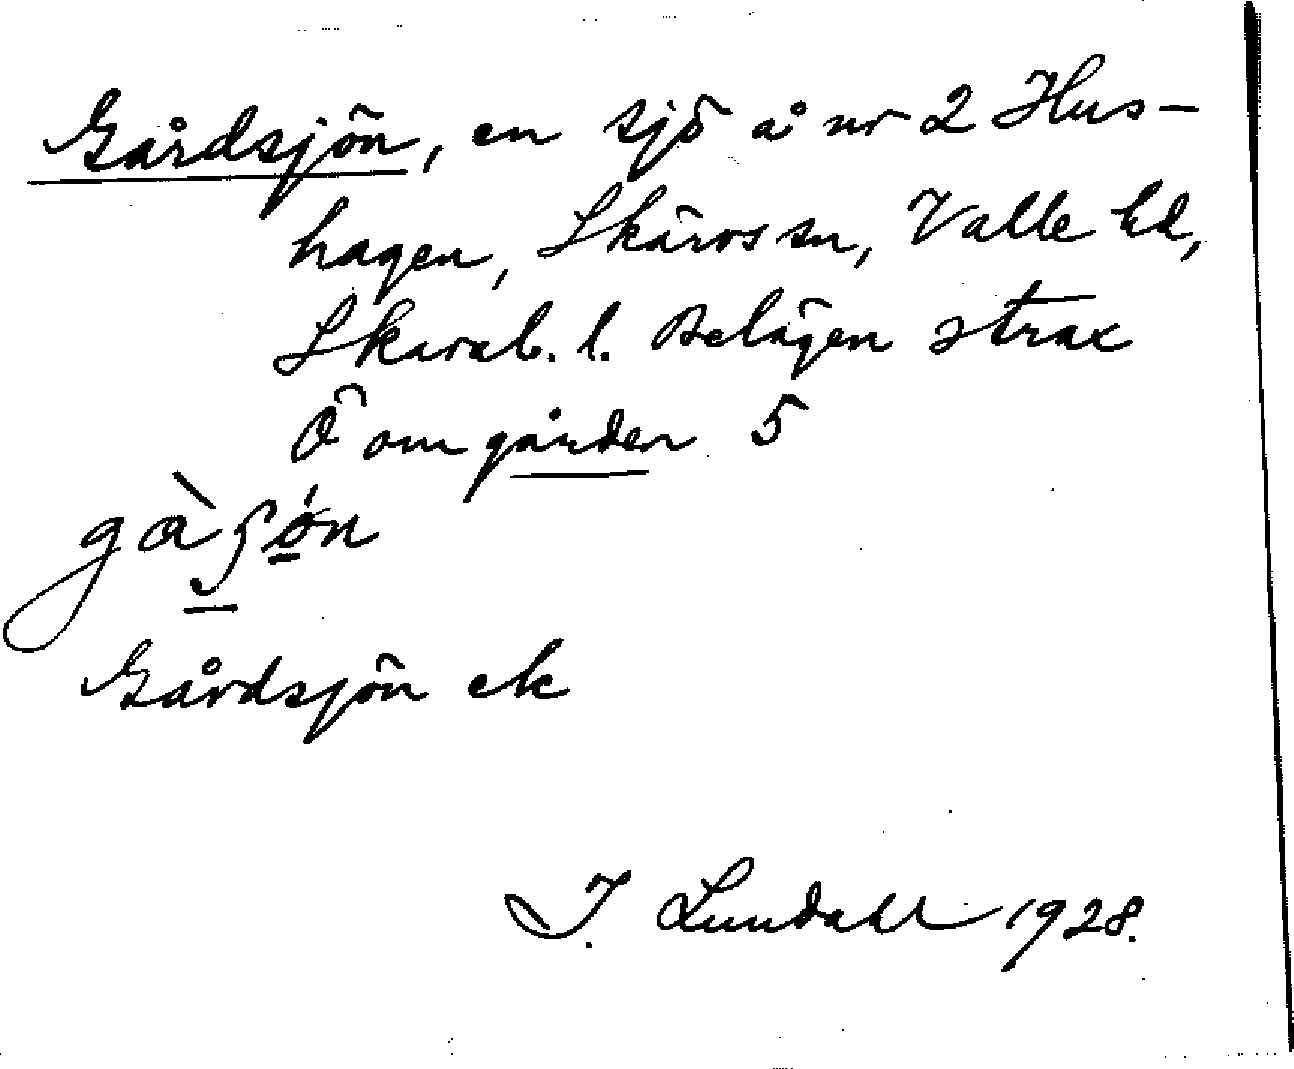 Gårdsjön, en sjö å nr 2 Hus-
hagen, Skärvs sn, Valle hd,
Skarab. l. Belägen strax
Ö om gården 5
gàʃǿn
Gårdsjön ek
I. Lundahl 1928.